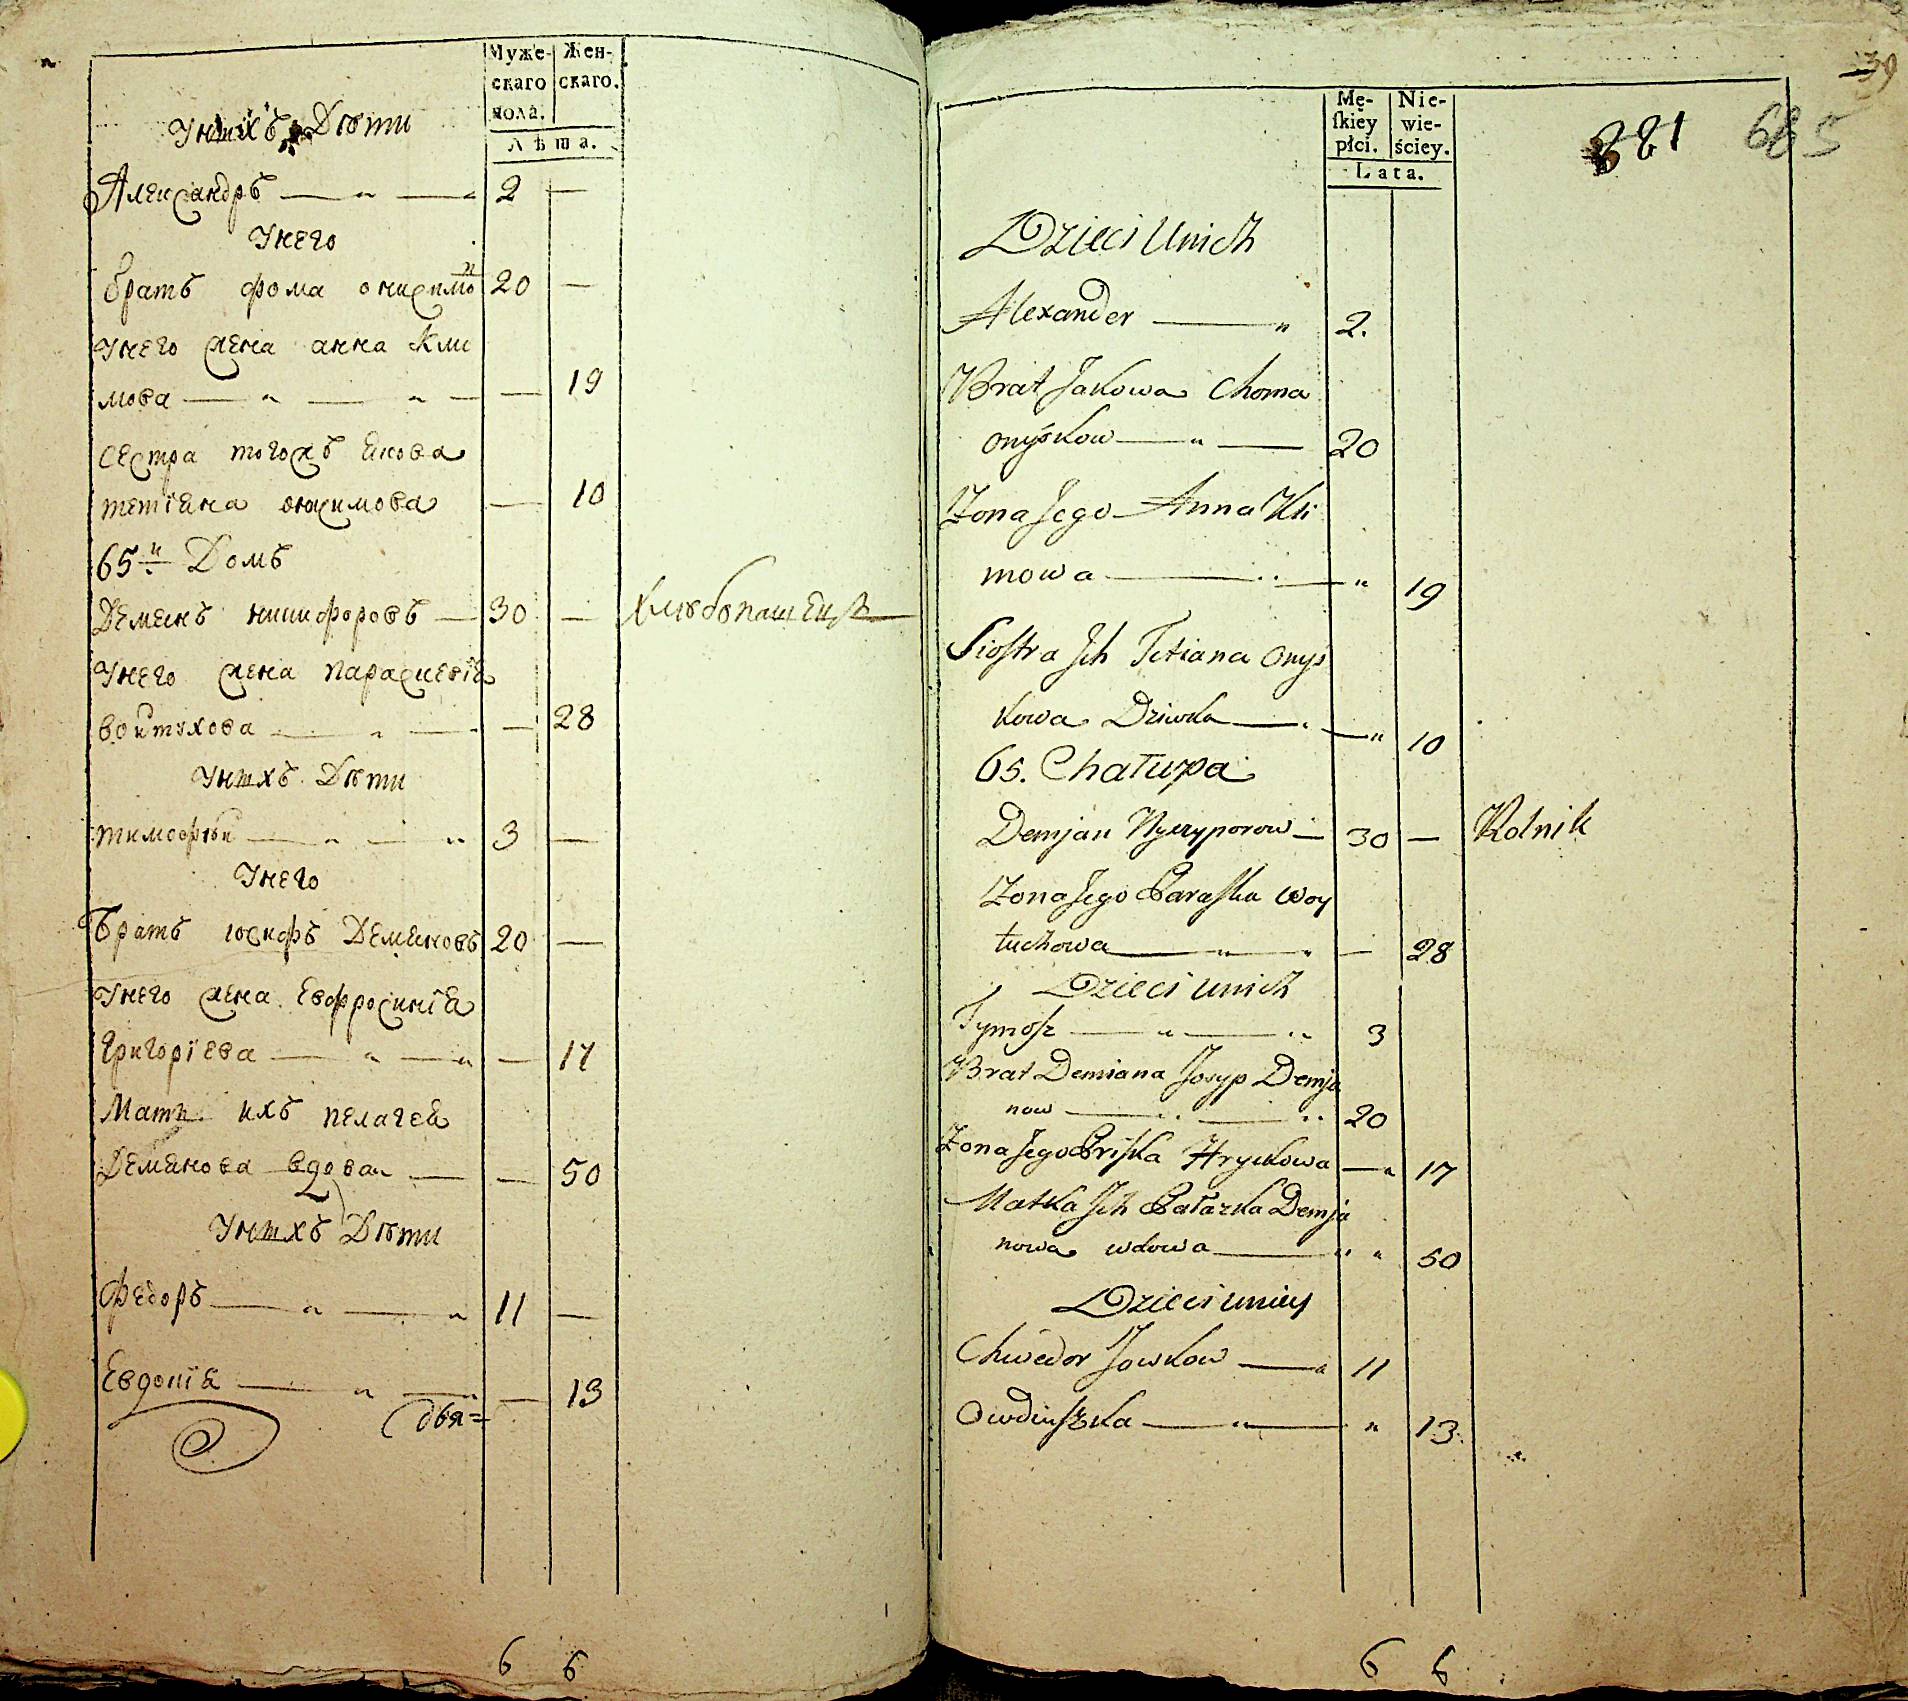 Муже- Жен-
скаго скаго.
пола.
Лѣта.
Унихъ Дѣти
Александръ — „ — „ 2 —
Унего
братъ фома онисимо 20 —
Унего жена анна Кли
мова — „ — „ — — 19
сестра тогожъ Якова
тетіяна онисимова — 10
65й Домъ
Демянъ никифоровъ — 30 — Хлѣбопашецъ
Унего жена параскевія
войтухова — „ — — 28
Унихъ Дѣти
тимофѣй — „ — „ 3 —
Унего
Братъ іосифъ Демяновъ 20 —
Унего жена Евфросинія
григоріева — „ — „ — 17
Мати ихъ пелагея
Демянова вдова — — 50
Унихъ Дѣти
Федоръ — „ — „ 11 —
Евдокія — „ — „ — 13
6 6
39
221 685
Mę- Nie-
skiey wie-
płci. ściey.
Lata.
Dzieci Unich
Alexander — „ 2.
Brat Jakowa Choma
onyśkow — „ — 20
Żona Jego Anna Kli
mowa — „ — „ 19
Siostra Ich Tetiana Onyś
kowa Dziwka — — „ 10
65. Chałupa
Demjan Nyczyporow — 30 — Rolnik
Żona Jego Paraska Woy
tuchowa — „ „ — 28
Dzieci Unich
Tymosz — „ — „ 3
Brat Demiana Josyp Demja
now — „ — „ 20
Żona Jego Pryśka Hryckowa — „ 17
Matka Ich Pałazka Demja
nowa wdowa — „ „ 50
Dzieci uniey
Chwedor Jowkow — „ 11
Owdiuszka — „ — „ 13
6 6